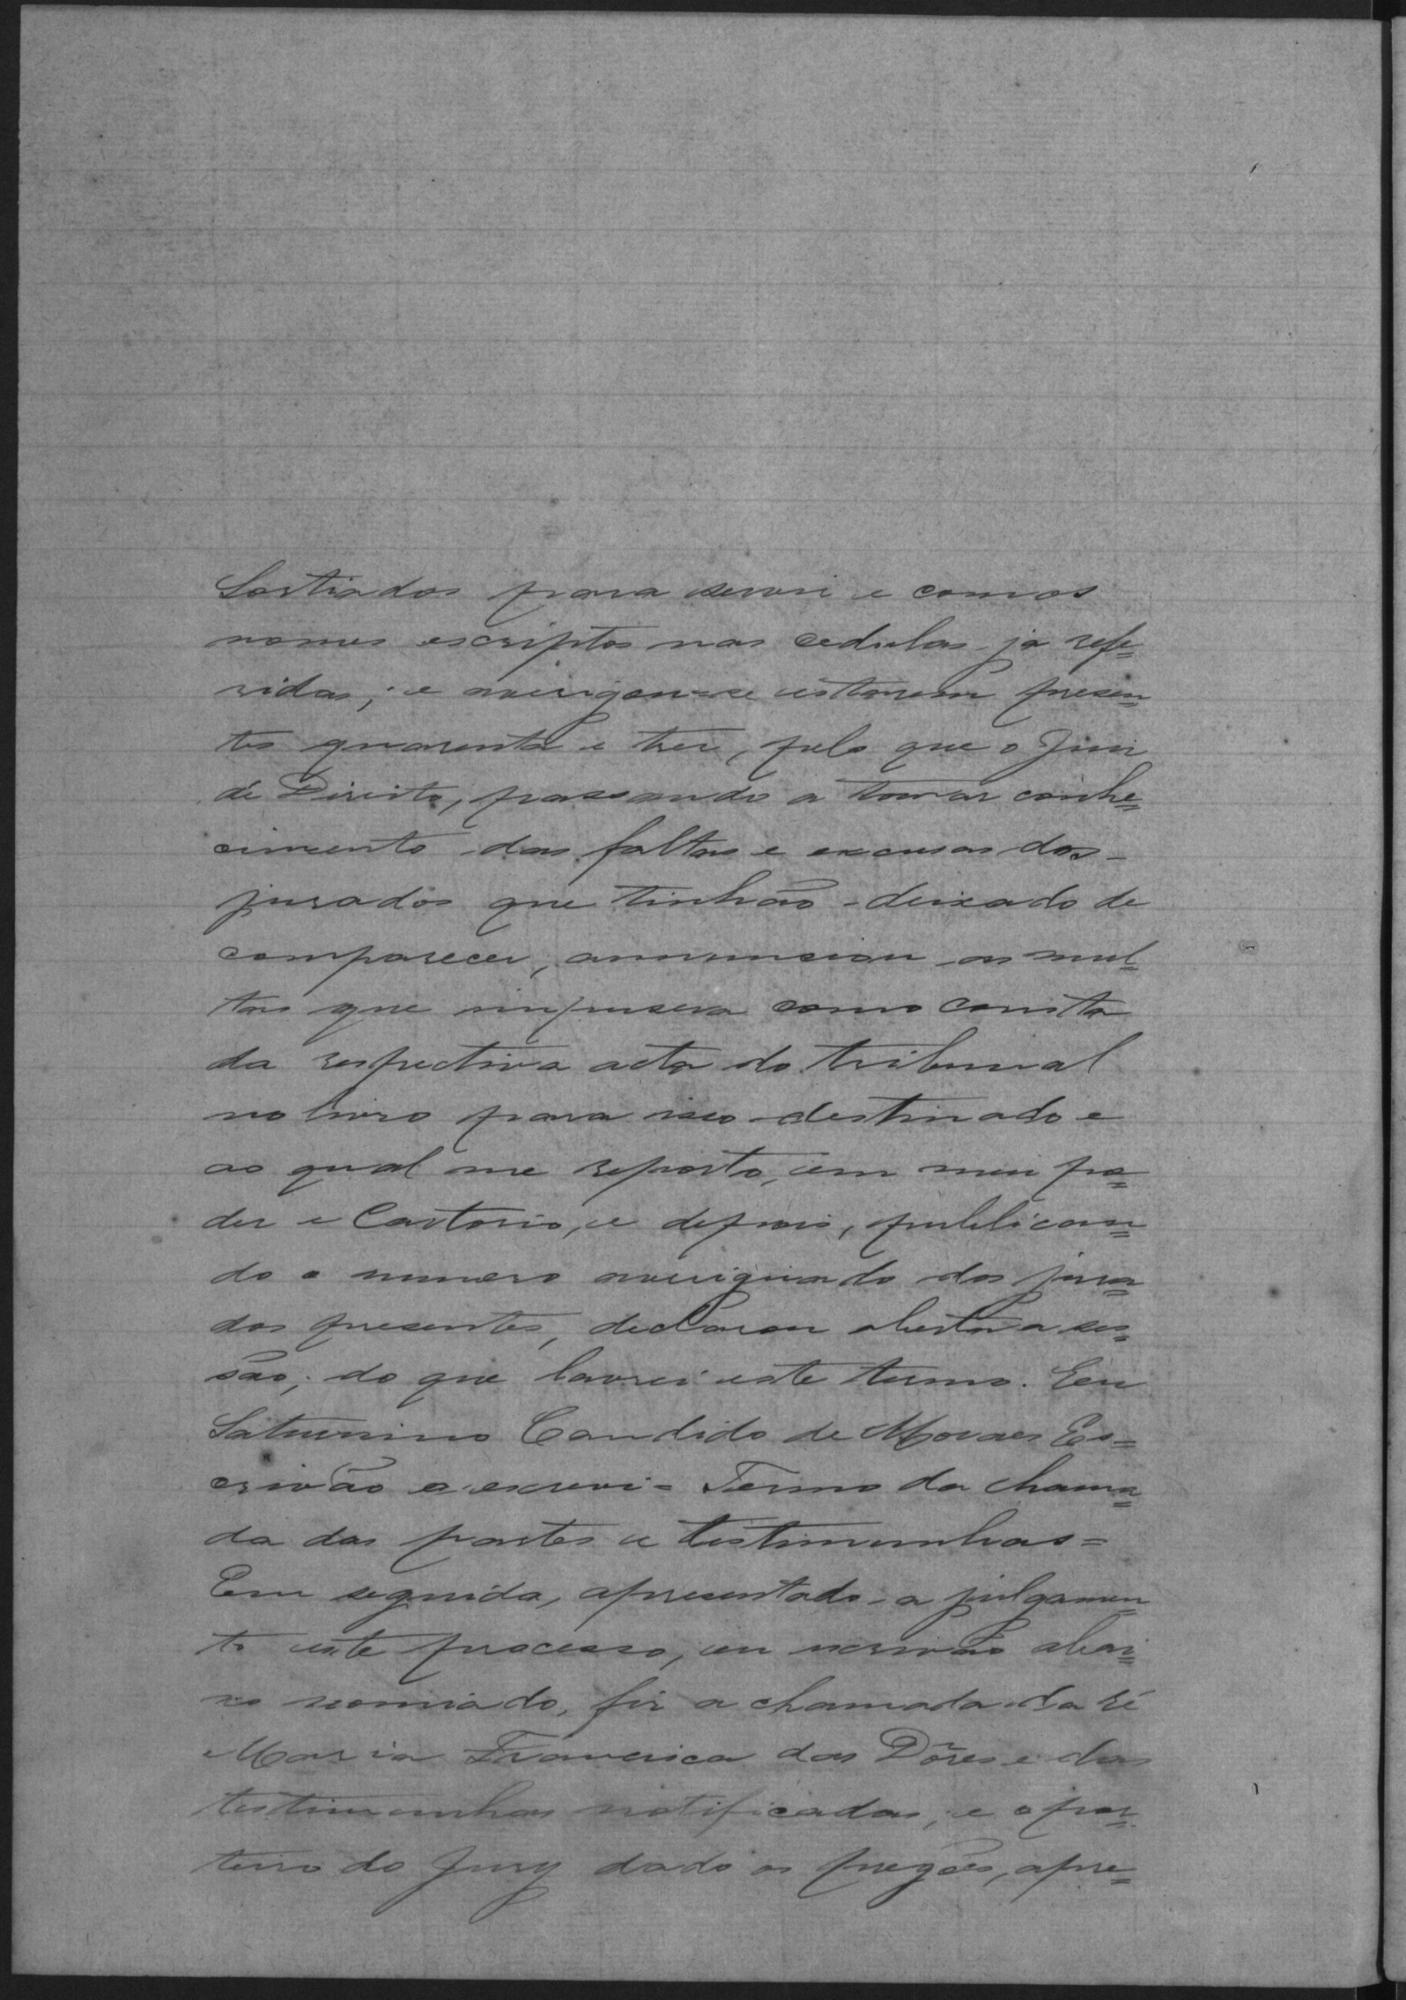 Sortiados para servir e com os
nomes escriptos nas cedulas já refe=
ridas; e averigou-se estarem presen=
tes quarenta e trez, pelo que o Juiz
de Direito, passando a tomar conhe=
cimento das faltas e excusas dos
jurados que tinhão deixado de
comparecer, annunciou as mul=
tas que impusera como consta
da respectiva acta do tribunal
no livro para isso destinado e
ao qual me reporto, em meu po=
der e Cartorio, e depois, publican=
do o numero averiguado dos jura=
dos presentes, declarou aberta a ses=
são; do que lavrei este termo. Eu
Saturnino Candido de Moraes Es=
crivão o escrevi = Termo da chama=
da das partes e testimunhas =
Em seguida, apresentado a julgamen=
to este processo, eu escrivão abai=
xo nomiado, fiz a chamada da ré
Maria Francisca das Dôres e das
testimunhas notificadas, e o por=
teiro do Jury dado os pregões, apre=